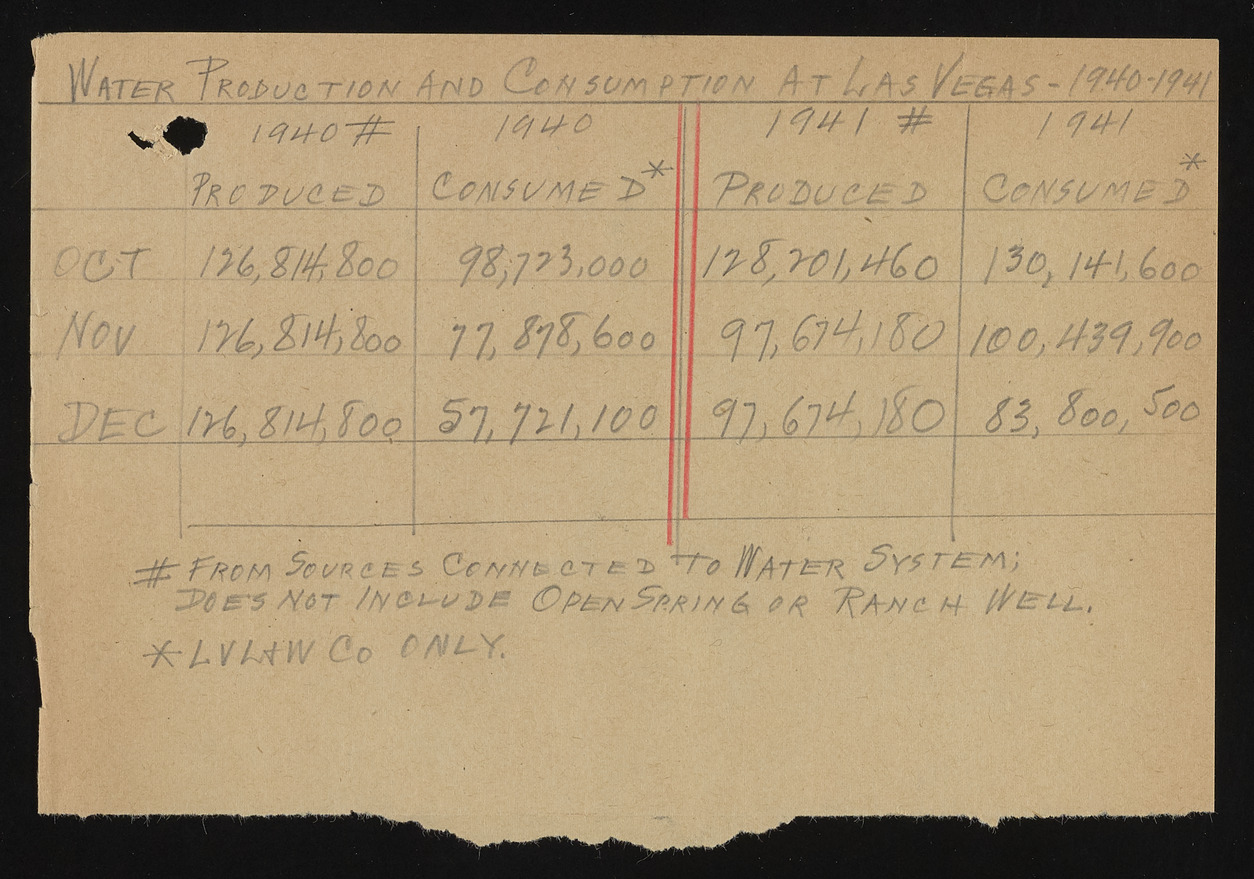 WATER PRODUCTION AND CONSUMPTION AT LAS VEGAS - 1940-1941
1940 # 1940 1941 # 1941
PRODUCED CONSUMED* PRODUCED CONSUMED*
OCT 126,814,800 98,723,000 128,201,460 130,141,600
NOV 126,814,800 77,878,600 97,674,180 100,439,900
DEC 126,814,800 57,721,100 97,674,180 83,800,500
# FROM SOURCES CONNECTED TO WATER SYSTEM;
DOES NOT INCLUDE OPEN SPRING OR RANCH WELL.
* LVL&W CO ONLY.